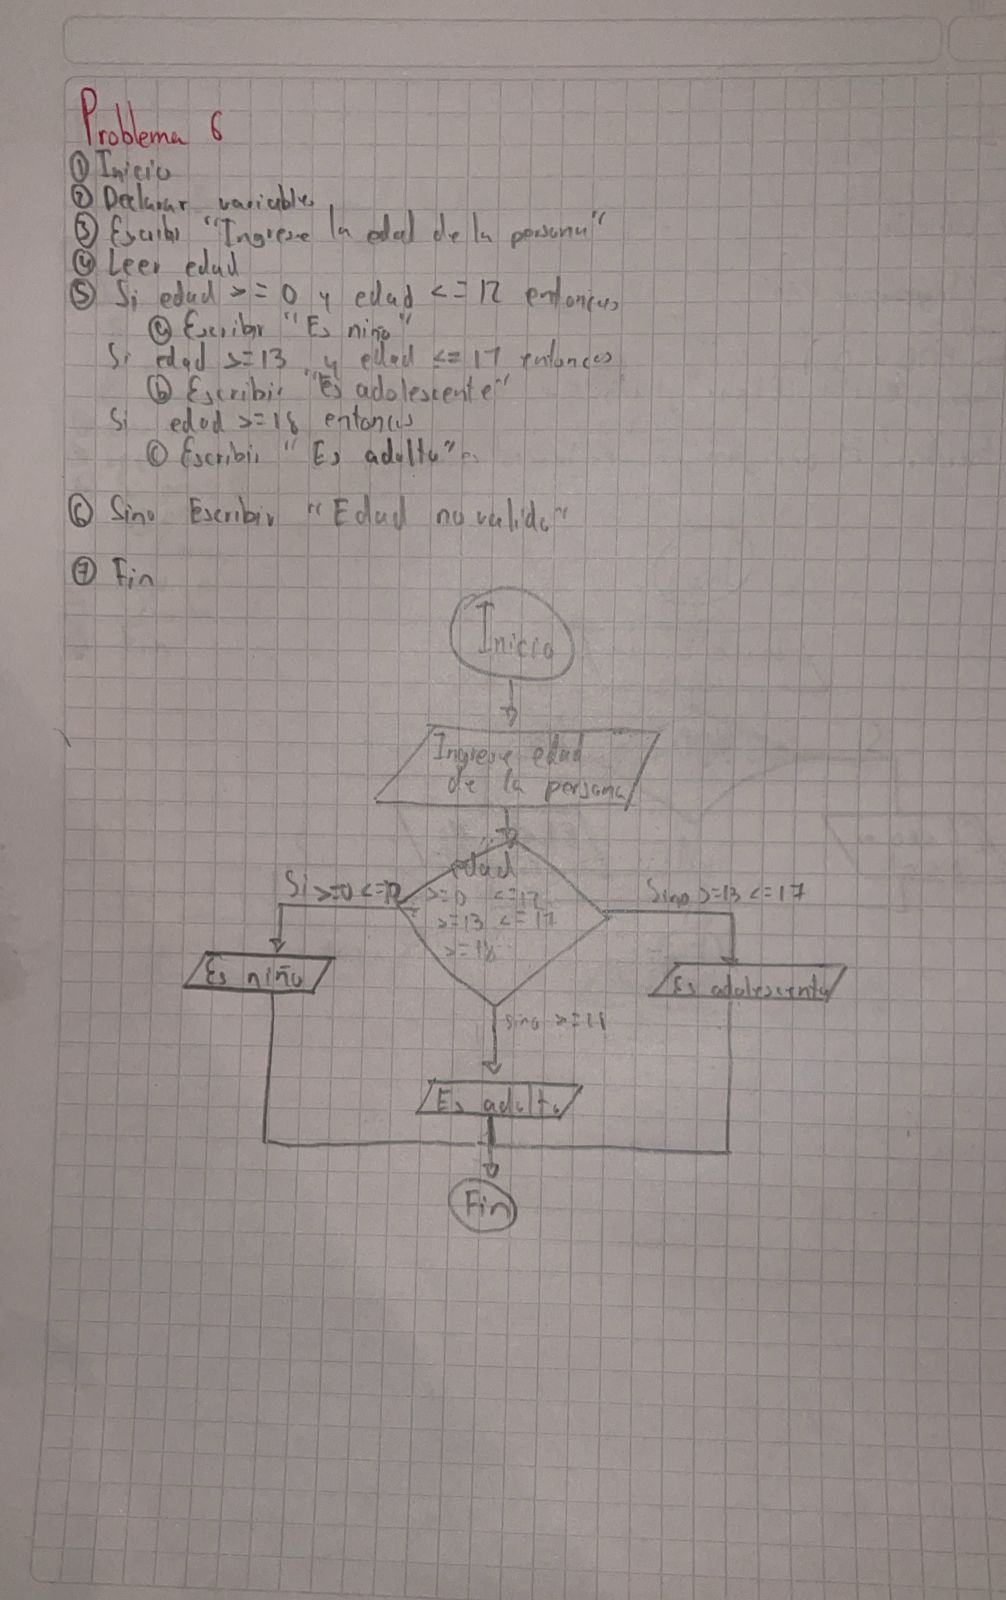 Problema 6
① Inicio
② Declarar variables
③ Escribi "Ingrese la edad de la persona"
④ Leer edad
⑤ Si edad >= 0 y edad <= 12 entonces
ⓐ Escribir "Es niño"
Si edad >= 13 y edad <= 17 entonces
ⓑ Escribir "Es adolescente"
Si edad >= 18 entonces
ⓒ Escribir "Es adulto"
⑥ Sino Escribir "Edad no valida"
⑦ Fin
Inicio
Ingrese edad
de la persona
edad
Si >=0 <=12
>=0 <=12
Sino >=13 <=17
>=13 <=17
>=18
Es niño
Es adolescente
sino >=18
Es adulto
Fin